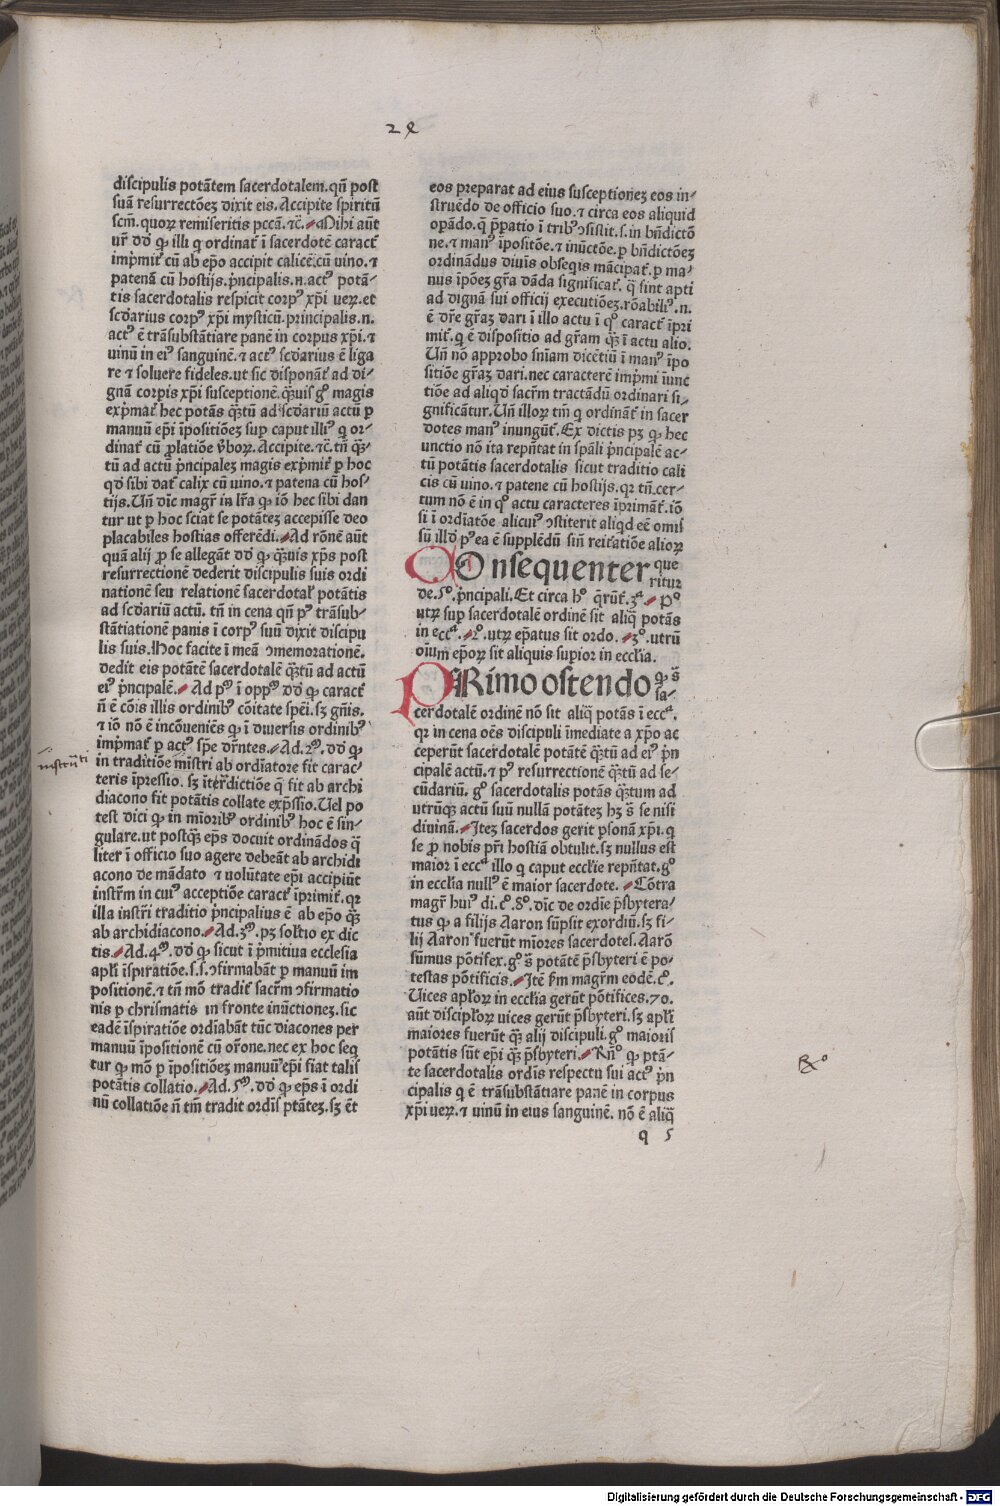 2x
discipulis potātem sacerdotalem. qñ post
suā resurrectōeꝫ dixit eis. Accipite spiritū
scm̄. quoꝝ remiseritis pccā. ⁊c̄. Mihi aūt
vr̄ dd̄ ꝙ illi q̇ ordinat̄ ī sacerdotē caract̄
imp̄mit̄ cū ab ep̄o accipit calicē. cū vino. ⁊
patenā cū hostijs. p̄ncipalis .n. actꝰ potā-
tis sacerdotalis respicit corpꝰ xp̄i veꝝ. et
scd̄arius corpꝰ xp̄i mysticū. principalis .n.
actꝰ ē trāsubstātiare panē in corpus xp̄i. ⁊
vinū in eiꝰ sanguinē. ⁊ actꝰ scd̄arius ē liga
re ⁊ soluere fideles. vt sic disponāt̄ ad di-
gnā corpis xp̄i susceptionē. qꝫuis gͦ magis
exp̄mat̄ hec potās qꝫtū ad scd̄ariū actū ꝑ
manuū ep̄i īpositiōeꝫ sup caput illiꝰ q̇ or-
dinat̄ cū ꝓlatiōe v̄boꝝ. Accipite. ⁊c̄. tn̄ qꝫ-
tū ad actū p̄ncipaleꝫ magis exp̄mit̄ ꝑ hoc
qd̄ sibi dat̄ calix cū vino. ⁊ patena cū hos-
tijs. Uñ dīc magr̄ in lr̄a ꝙ iō hec sibi dan
tur vt ꝑ hoc sciāt se potāteꝫ accepisse deo
placabiles hostias offerēdi. Ad rōnē aūt
quā alij ꝓ se allegāt dd̄ ꝙ qꝫuis xp̄s post
resurrectionē dederit discipulis suis ordi
nationē seu relationē sacerdotal̄ potātis
ad scd̄ariū actū. tñ in cena qñ pꝰ trāsub-
stātiationē panis ī corpꝰ suū dixit discipu
lis suis. Hoc facite ī meā ꝯmemorationē.
dedit eis potātē sacerdotalē qꝫtū ad actū
eiꝰ p̄ncipalē. Ad pᵐ ī oppᵐ dd̄ ꝙ caract̄
n̄ ē cōis illis ordinibꝰ cōitate spēi. sꝫ gn̄is.
⁊ iō nō ē incōueniēs ꝙ ī diuersis ordinibꝰ
imp̄mat̄ ꝑ actꝰ sp̄e dr̄ntes. Ad .2ᵐ. dd̄ ꝙ
in traditiōe mīstri ab ordīatore fit carac-
teris īpressio. sꝫ īter̄dictiōe q̄ fit ab archi
diacono fit potātis collate exp̄ssio. Uel po
test dici ꝙ in mīoribꝰ ordinibꝰ hoc ē sin-
gulare. vt postqꝫ ep̄s docuit ordinādos q̄
liter ī officio suo agere debeāt ab archidi
acono de mādato ⁊ volūtate ep̄i accipiūt
instr̄m in cuiꝰ acceptiōe caract̄ īprimit̄. qꝛ
illa instr̄i traditio p̄ncipalius ē ab ep̄o qꝫ
ab archidiacono. Ad .3ᵐ. pꝫ sol̄tio ex dic
tis. Ad .4ᵐ. dd̄ ꝙ sicut ī p̄mitiua ecclesia
apl̄i īspiratiōe .s.s. ꝯfirmabāt ꝑ manuū im
positionē. ⁊ tn̄ mō tradit̄ sacr̄m ꝯfirmatio
nis ꝑ chrismatis in fronte inūctioneꝫ. sic
eadē īspiratiōe ordīabāt tūc diacones per
manuū īpositionē cū or̄one. nec ex hoc seq̇
tur ꝙ mō ꝑ īpositiōeꝫ manuū ep̄i fiat talis
potātis collatio. Ad .5ᵐ. dd̄ ꝙ ep̄s ī ordi
nū collatiōe n̄ tm̄ tradit ordīs ptāteꝫ. sꝫ ēt
eos preparat ad eius susceptioneꝫ eos in-
struēdo de officio suo. ⁊ circa eos aliquid
opādo. q̄ p̄patio ī tribꝰ ꝯsistit .s. in bn̄dictō
ne. ⁊ manꝰ īpositōe. ⁊ inūctōe. ꝑ bn̄dictōeꝫ
ordinādus diuīs obseq̇is mācipat̄. ꝑ ma-
nus īpōeꝫ gr̄a dāda significat̄. q̄ sint apti
ad dignā sui officij executiōeꝫ. rōabiliꝰ .n.
ē dr̄e gr̄aꝫ dari ī illo actu ī qͦ caract̄ īpri
mit̄. q̇ ē dispositio ad gr̄am qꝫ ī actu alio.
Uñ nō approbo sn̄iam dicētiū ī manꝰ īpo
sitiōe gr̄aꝫ dari. nec caracterē imp̄mi īunc
tiōe ad aliqd̄ sacr̄m tractādū ordinari si-
gnificātur. Uñ illoꝝ tm̄ q̇ ordināt̄ in sacer
dotes manꝰ inungūt̄. Ex dictis pꝫ ꝙ hec
unctio nō ita repn̄tat in spāli p̄ncipalē ac-
tū potātis sacerdotalis sicut traditio cali
cis cū vino. ⁊ patene cū hostijs. qꝛ tn̄. cer-
tum nō ē in qͦ actu caracteres īprimāt̄. iō
si ī ordīatōe alicuiꝰ ꝯstiterit aliqd eē omis
sū illd̄ pꝰea ē supplēdū sin̄ reitatiōe alioꝝ
COnsequenter que
ritur
de .5ͦ. p̄ncipali. Et circa hͦ q̄rūt̄ .3ᵃ. pͦ
utꝝ sup sacerdotalē ordinē sit aliq̄ potās
in eccᵃ. 2ͦ. utꝝ ep̄atus sit ordo. 3ͦ. utrū
oīum ep̄oꝝ sit aliquis supior in eccl̄ia.
PRimo ostendo ꝙ s̄
sa-
cerdotalē ordinē nō sit aliq̄ potās ī eccᵃ.
qꝛ in cena oēs discipuli īmediate a xp̄o ac
ceperūt sacerdotalē potātē qꝫtū ad eiꝰ p̄n
cipalē actū. ⁊ pꝰ resurrectionē qꝫtū ad se-
cūdariū. gͦ sacerdotalis potās qꝫtum ad
utrūqꝫ actū suū nullā potāteꝫ hꝫ s̄ se nisi
diuinā. Iteꝫ sacerdos gerit ꝑsonā xp̄i. q̇
se ꝓ nobis pr̄i hostiā obtulit. sꝫ nullus est
maior ī eccᵃ illo q̇ caput eccl̄ie repn̄tat. gͦ
in eccl̄ia nullꝰ ē maior sacerdote. Cōtra
magr̄ huiꝰ di. c̄ͦ. 8ͦ. dīc de ordīe p̄sbytera-
tus ꝙ a filijs Aaron sūpsit exordiū. sꝫ fi-
lij Aaron fuerūt mīores sacerdotes. Aarō
sūmus pōtifex. gͦ s̄ potātē p̄sbyteri ē po-
testas pōtificis. Itē ẜm magr̄m eodē. c̄ͦ.
Uices apl̄oꝝ in eccl̄ia gerūt pōtifices .70.
aūt discipl̄oꝝ vices gerūt p̄sbyteri. sꝫ apl̄i
maiores fuerūt qꝫ alij discipuli. gͦ maioris
potātis sūt ep̄i qꝫ p̄sbyteri. Rn̄ͦ ꝙ ptā-
te sacerdotalis ordīs respectu sui actꝰ p̄n
cipalis q̇ ē trāsubstātiare panē in corpus
xp̄i veꝝ. ⁊ vinū in eius sanguinē. nō ē aliq̄
q 5
Digitalisierung gefördert durch die Deutsche Forschungsgemeinschaft - DFG